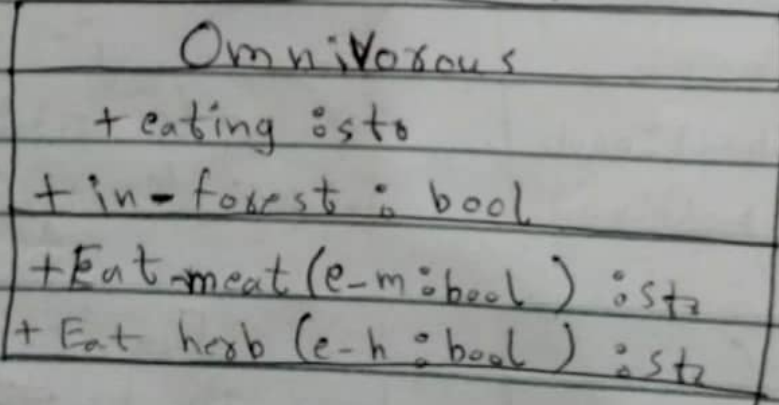 Omnivorous
+ eating : str
+ in-forest : bool
+ Eat-meat (e-m : bool) : str
+ Eat herb (e-h : bool) : str